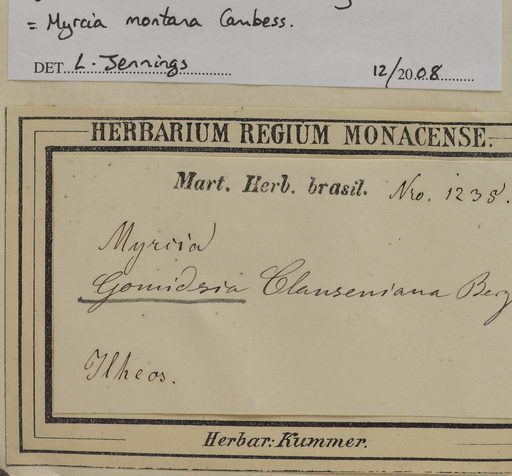 = Myrcia montana Cambess.
DET. L. Jennings 12/2008
HERBARIUM REGIUM MONACENSE.
Mart. Herb. brasil. Nro. 1238.
Myrcia
Gomidesia Clauseniana Berg
Ilheos.
Herbar: Kummer.